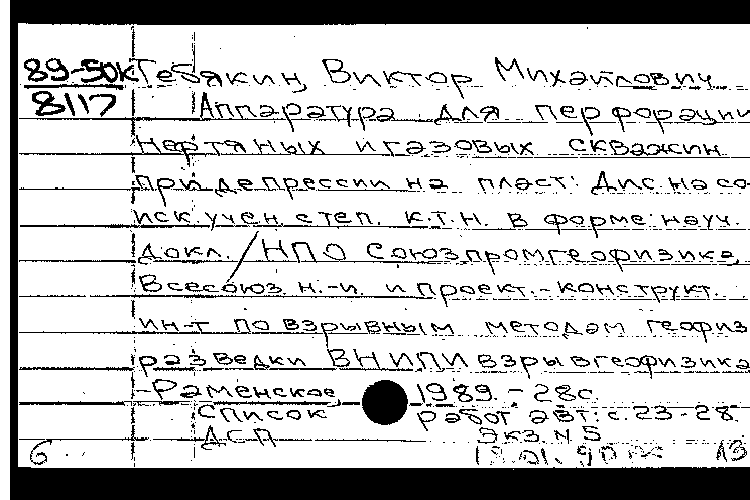 89-50к Тебякин, Виктор Михайлович
8117 Аппаратура для перфорации
нефтяных и газовых скважин
при депрессии на пласт: Дис. на со
иск. учен. степ. к.т.н. в форме науч.
докл./НПО Союзпромгеофизика,
Всесоюз. н.-и. и проект.-конструкт.
ин-т по взрывным методам геофиз
разведки ВНИПИвзрывгеофизика
-Раменское, 1989. - 28с.
Список работ авт.: с. 23-28.
ДСП Экз. N5
6 90 13